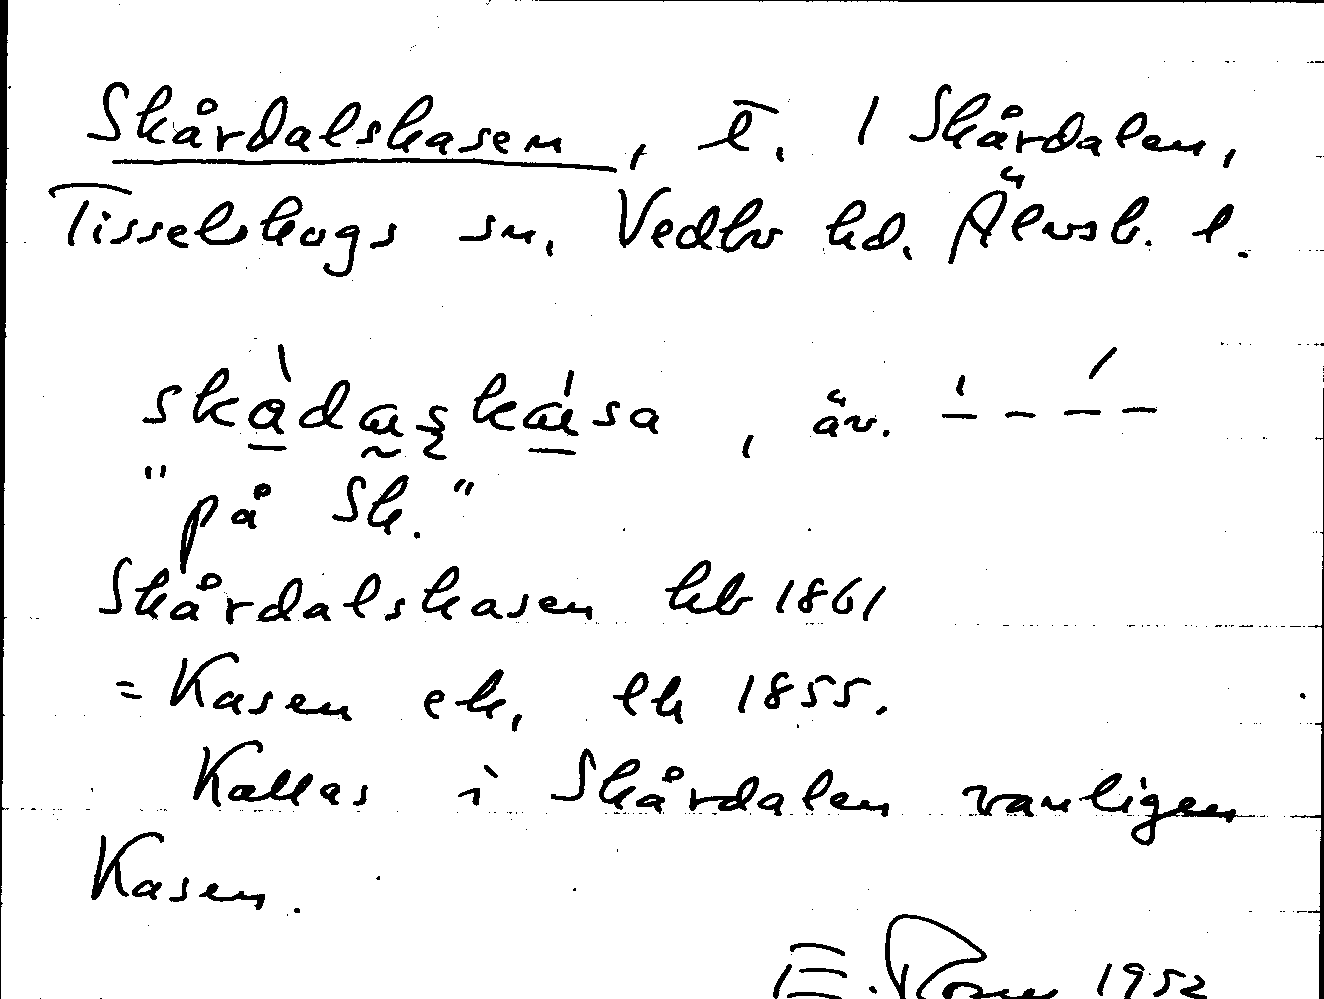 Skårdalskasen, t. 1 Skårdalen,
Tisselskogs sn, Vedbo hd. Älvsb. l.
skådaskása, äv.
"på Sk."
Skårdalskasen hb 1861
= Kasen ek, ek 1855.
Kallas i Skårdalen vanligen
Kasen.
E. 1952